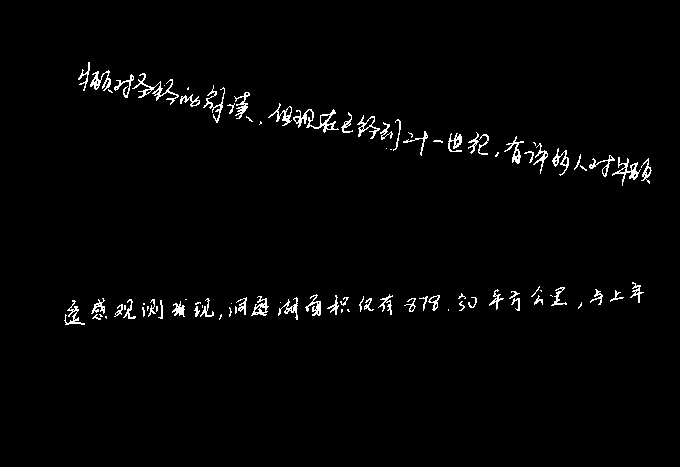 牛顿对圣经的解读，但现在已经到二十一世纪，有许多人对牛顿
遥感观测发现，洞庭湖面积仅有878.50平方公里，与上年